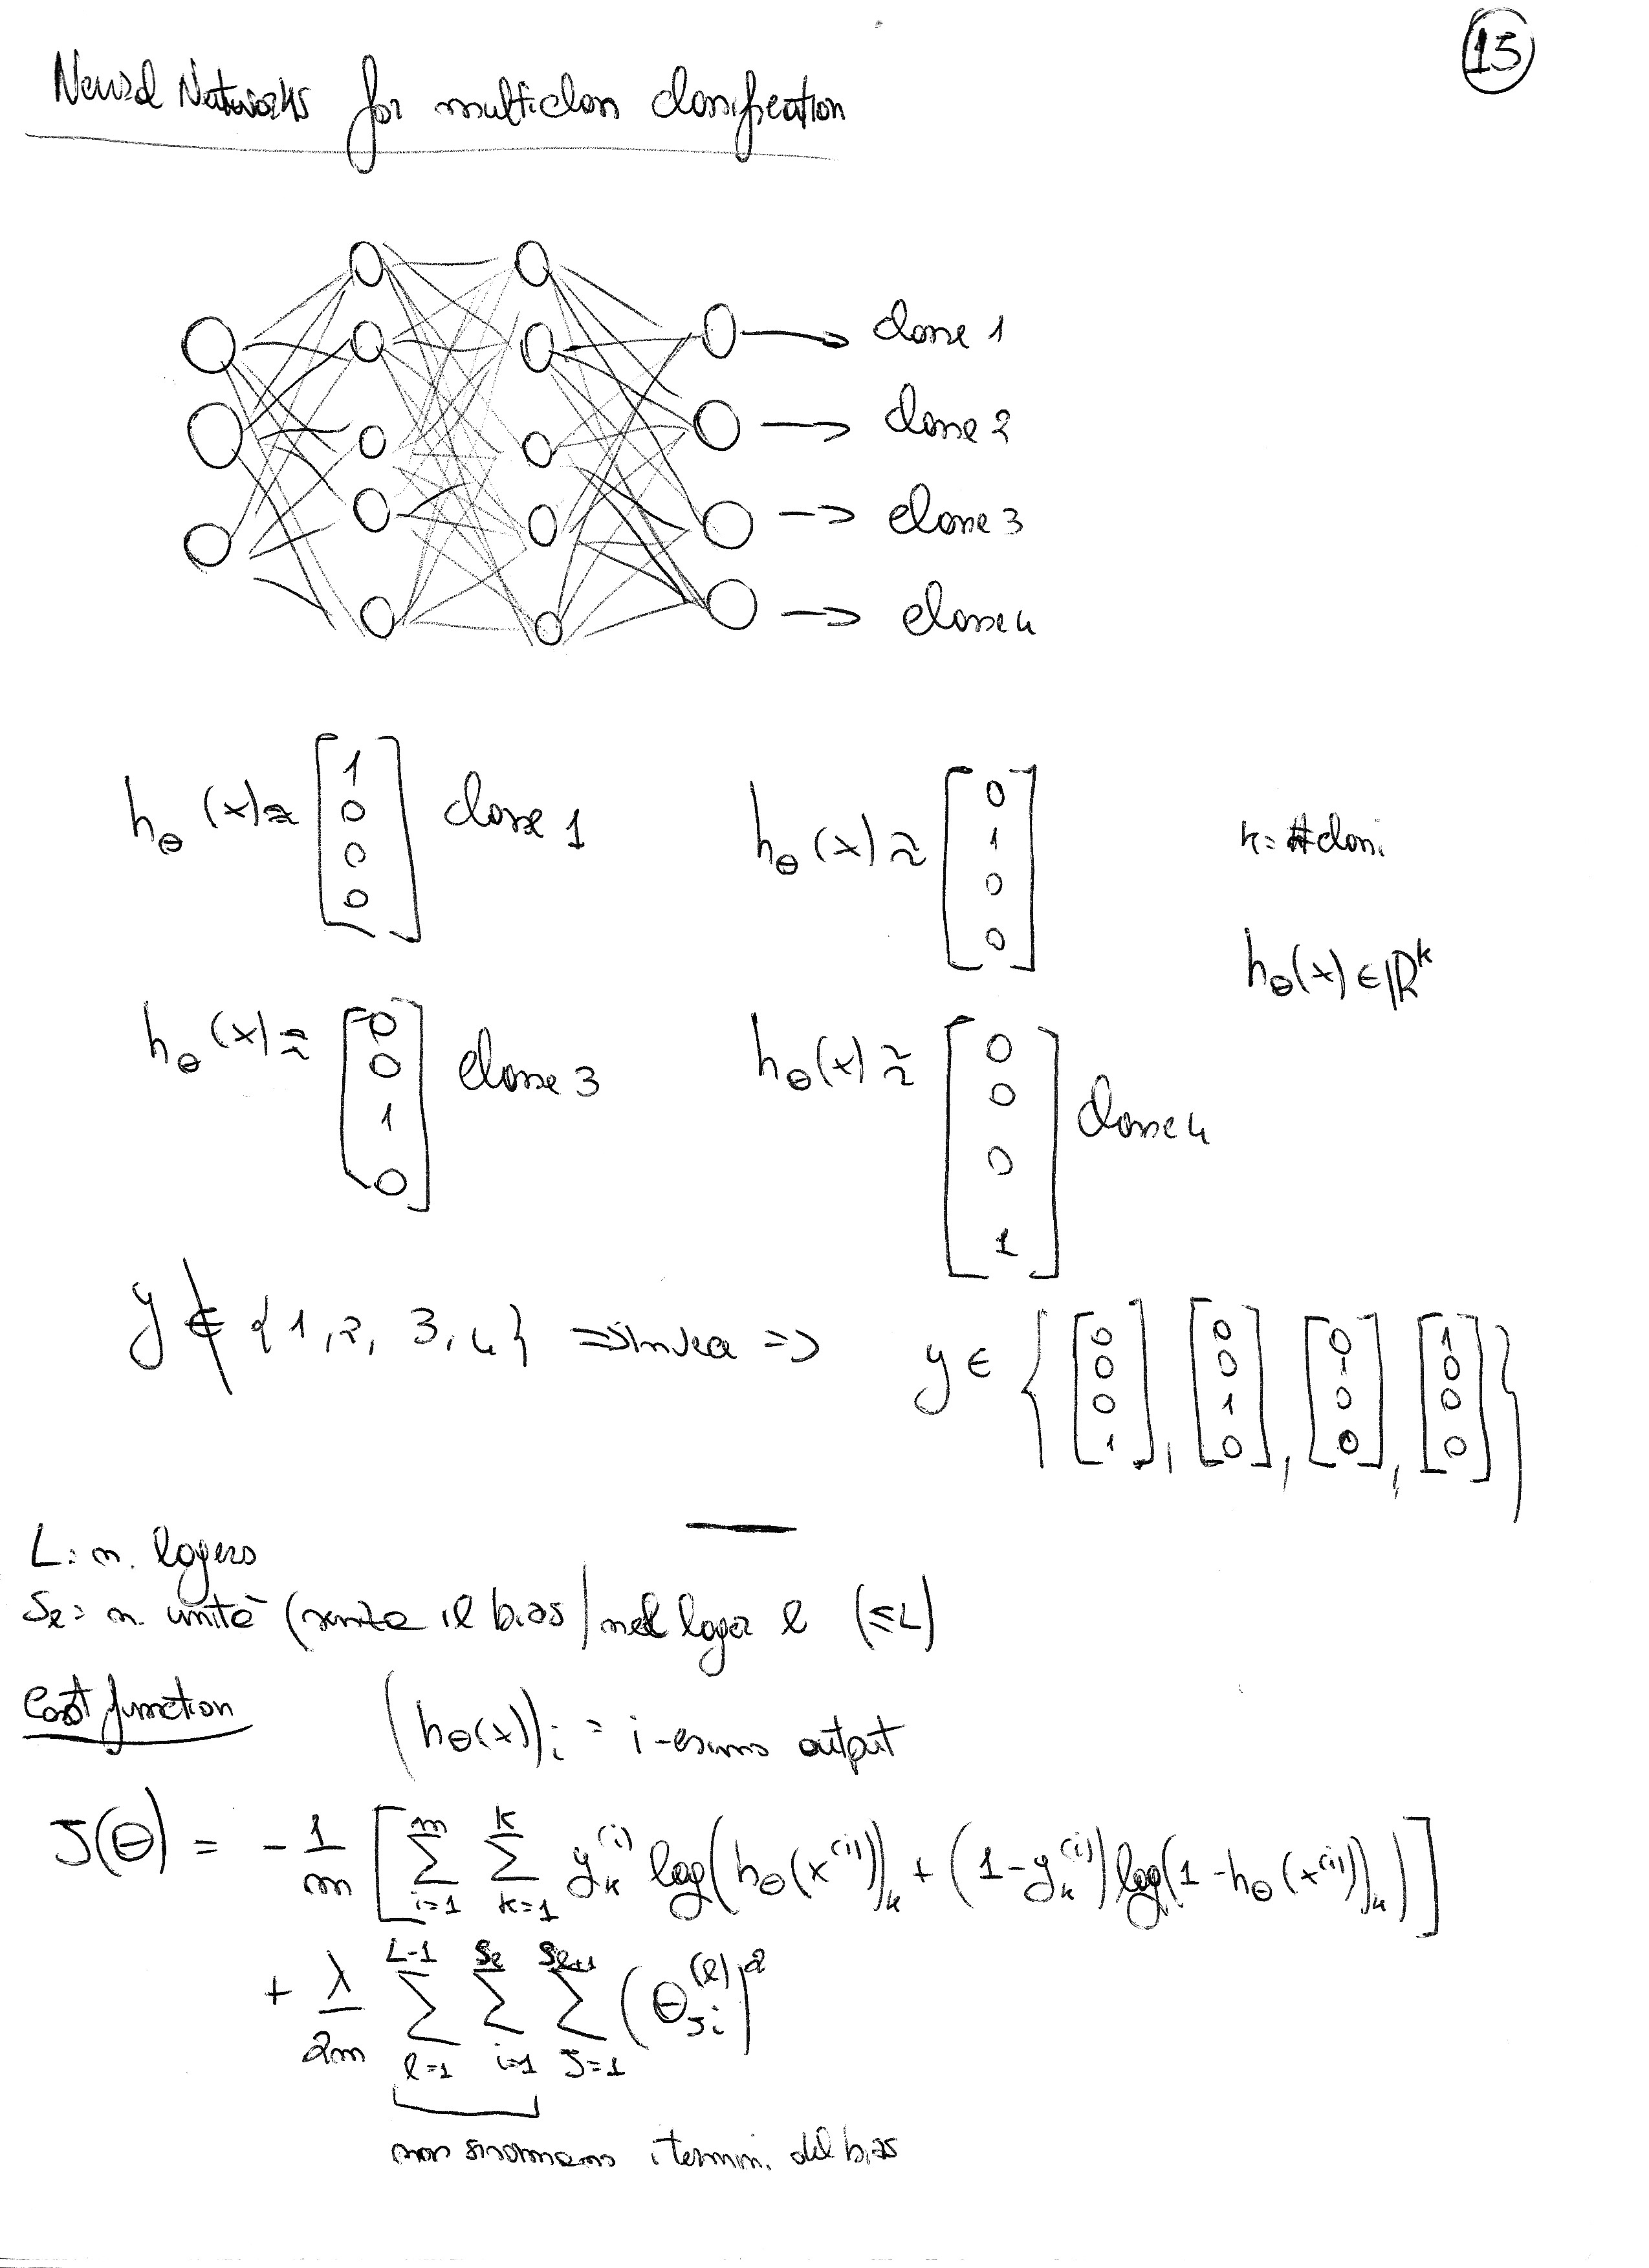 15
Neural Networks for multiclass classification
classe 1
classe 2
classe 3
classe 4
hθ(x) ≈ [1 0 0 0] classe 1
hθ(x) ≈ [0 1 0 0]
k = # classi
hθ(x) ∈ ℝᵏ
hθ(x) ≈ [0 0 1 0] classe 3
hθ(x) ≈ [0 0 0 1] classe 4
y ∉ {1, 2, 3, 4} => invece => y ∈ { [0 0 0 1], [0 0 1 0], [0 1 0 0], [1 0 0 0] }
L = n. layers
Sℓ = n. unità (senza il bias) nel layer ℓ (≤L)
Cost function
(hθ(x))i = i-esimo output
J(θ) = - 1/m [ Σ_{i=1}^{m} Σ_{k=1}^{k} y_k^{(i)} log(hθ(x^{(i)}))_k + (1-y_k^{(i)}) log(1-hθ(x^{(i)}))_k) ]
+ λ/2m Σ_{ℓ=1}^{L-1} Σ_{i=1}^{Sℓ} Σ_{J=1}^{Sℓ+1} (θ_{Ji}^{(ℓ)})²
non si sommano i termini del bias